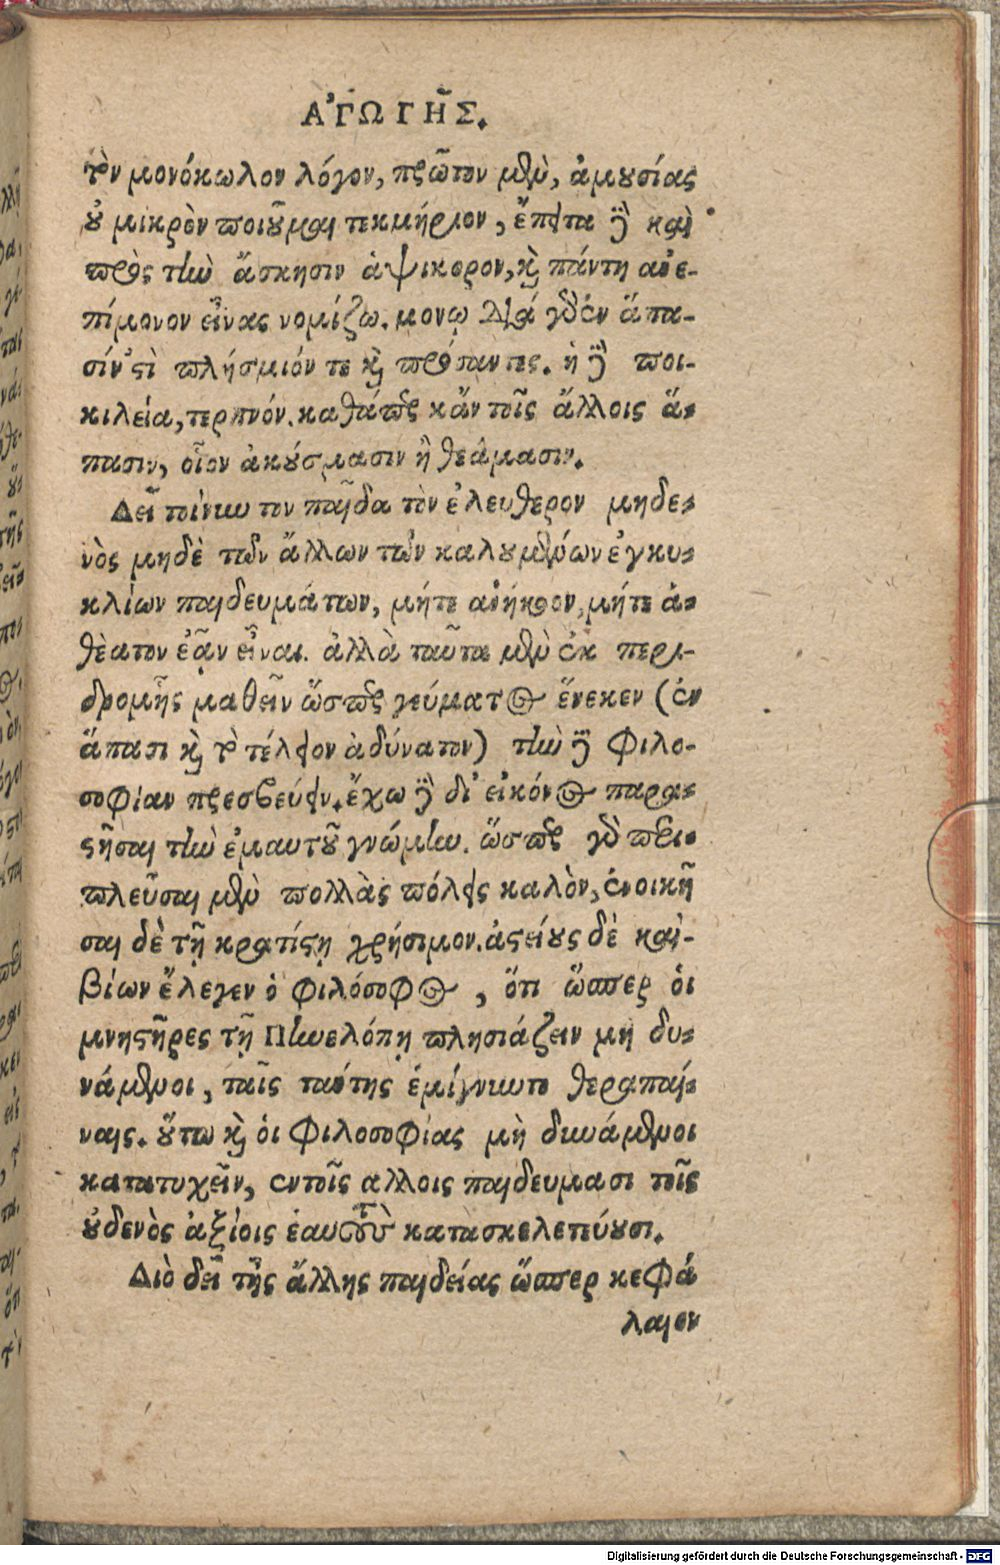 ἈΓΩΓΗ͂Σ.
τὸν μονόκωλον λόγον, πρῶτον μὲν, ἀμουσίας
οὐ μικρὸν ποιοῦμαι τεκμήριον, ἔπειτα δὲ καὶ
πρὸς τὴν ἄσκησιν ἁψίκορον, καὶ πάντη ἀνε-
πίμονον εἶναι νομίζω. μονῳδία γὰρ ἐν ἅπα-
σίν ἐστὶ πλήσμιόν τε καὶ πρόσαντες. ἡ δὲ ποι-
κιλεία, τερπνόν. καθάπερ κἂν τοῖς ἄλλοις ἅ-
πασιν, οἷον ἀκούσμασιν ἢ θεάμασιν.
Δεῖ τοίνυν τον παῖδα τὸν ἐλευθερον μηδε-
νὸς μηδὲ τῶν ἄλλων τῶν καλουμένων ἐγκυ-
κλίων παιδευμάτων, μήτε ἀνήκοον, μήτε ἀ-
θέατον ἐᾷν εἶναι. ἀλλὰ ταῦτα μὲν ἐκ περι-
δρομῆς μαθεῖν ὥσπερ γεύματος ἕνεκεν (ἐν
ἅπασι καὶ τὸ τέλειον ἀδύνατον) τὴν δὲ φιλο-
σοφίαν πρεσβεύειν. ἔχω δὲ δι' εἰκόνος παρα-
στῆσαι τὴν ἐμαυτοῦ γνώμην. ὥσπερ γὰρ περι-
πλεῦσαι μὲν πολλὰς πόλεις καλὸν, ἐνοικῆ
σαι δὲ τῇ κρατίστῃ χρήσιμον. ἀστείους δὲ καὶ-
βίων ἔλεγεν ὁ φιλόσοφος, ὅτι ὥσπερ οἱ
μνηστῆρες τῇ Πηνελόπῃ πλησιάζειν μὴ δυ-
νάμενοι, ταῖς ταύτης ἐμίγνυντο θεραπαί-
ναις. οὕτω καὶ οἱ φιλοσοφίας μὴ δυνάμενοι
κατατυχεῖν, ἐν τοῖς αλλοις παιδευμασι τοῖς
οὐδενὸς ἀξίοις ἑαυτοὺς κατασκελετεύουσι.
Διὸ δεῖ τῆς ἄλλης παιδείας ὥσπερ κεφά
λαιον
Digitalisierung gefördert durch die Deutsche Forschungsgemeinschaft - DFG